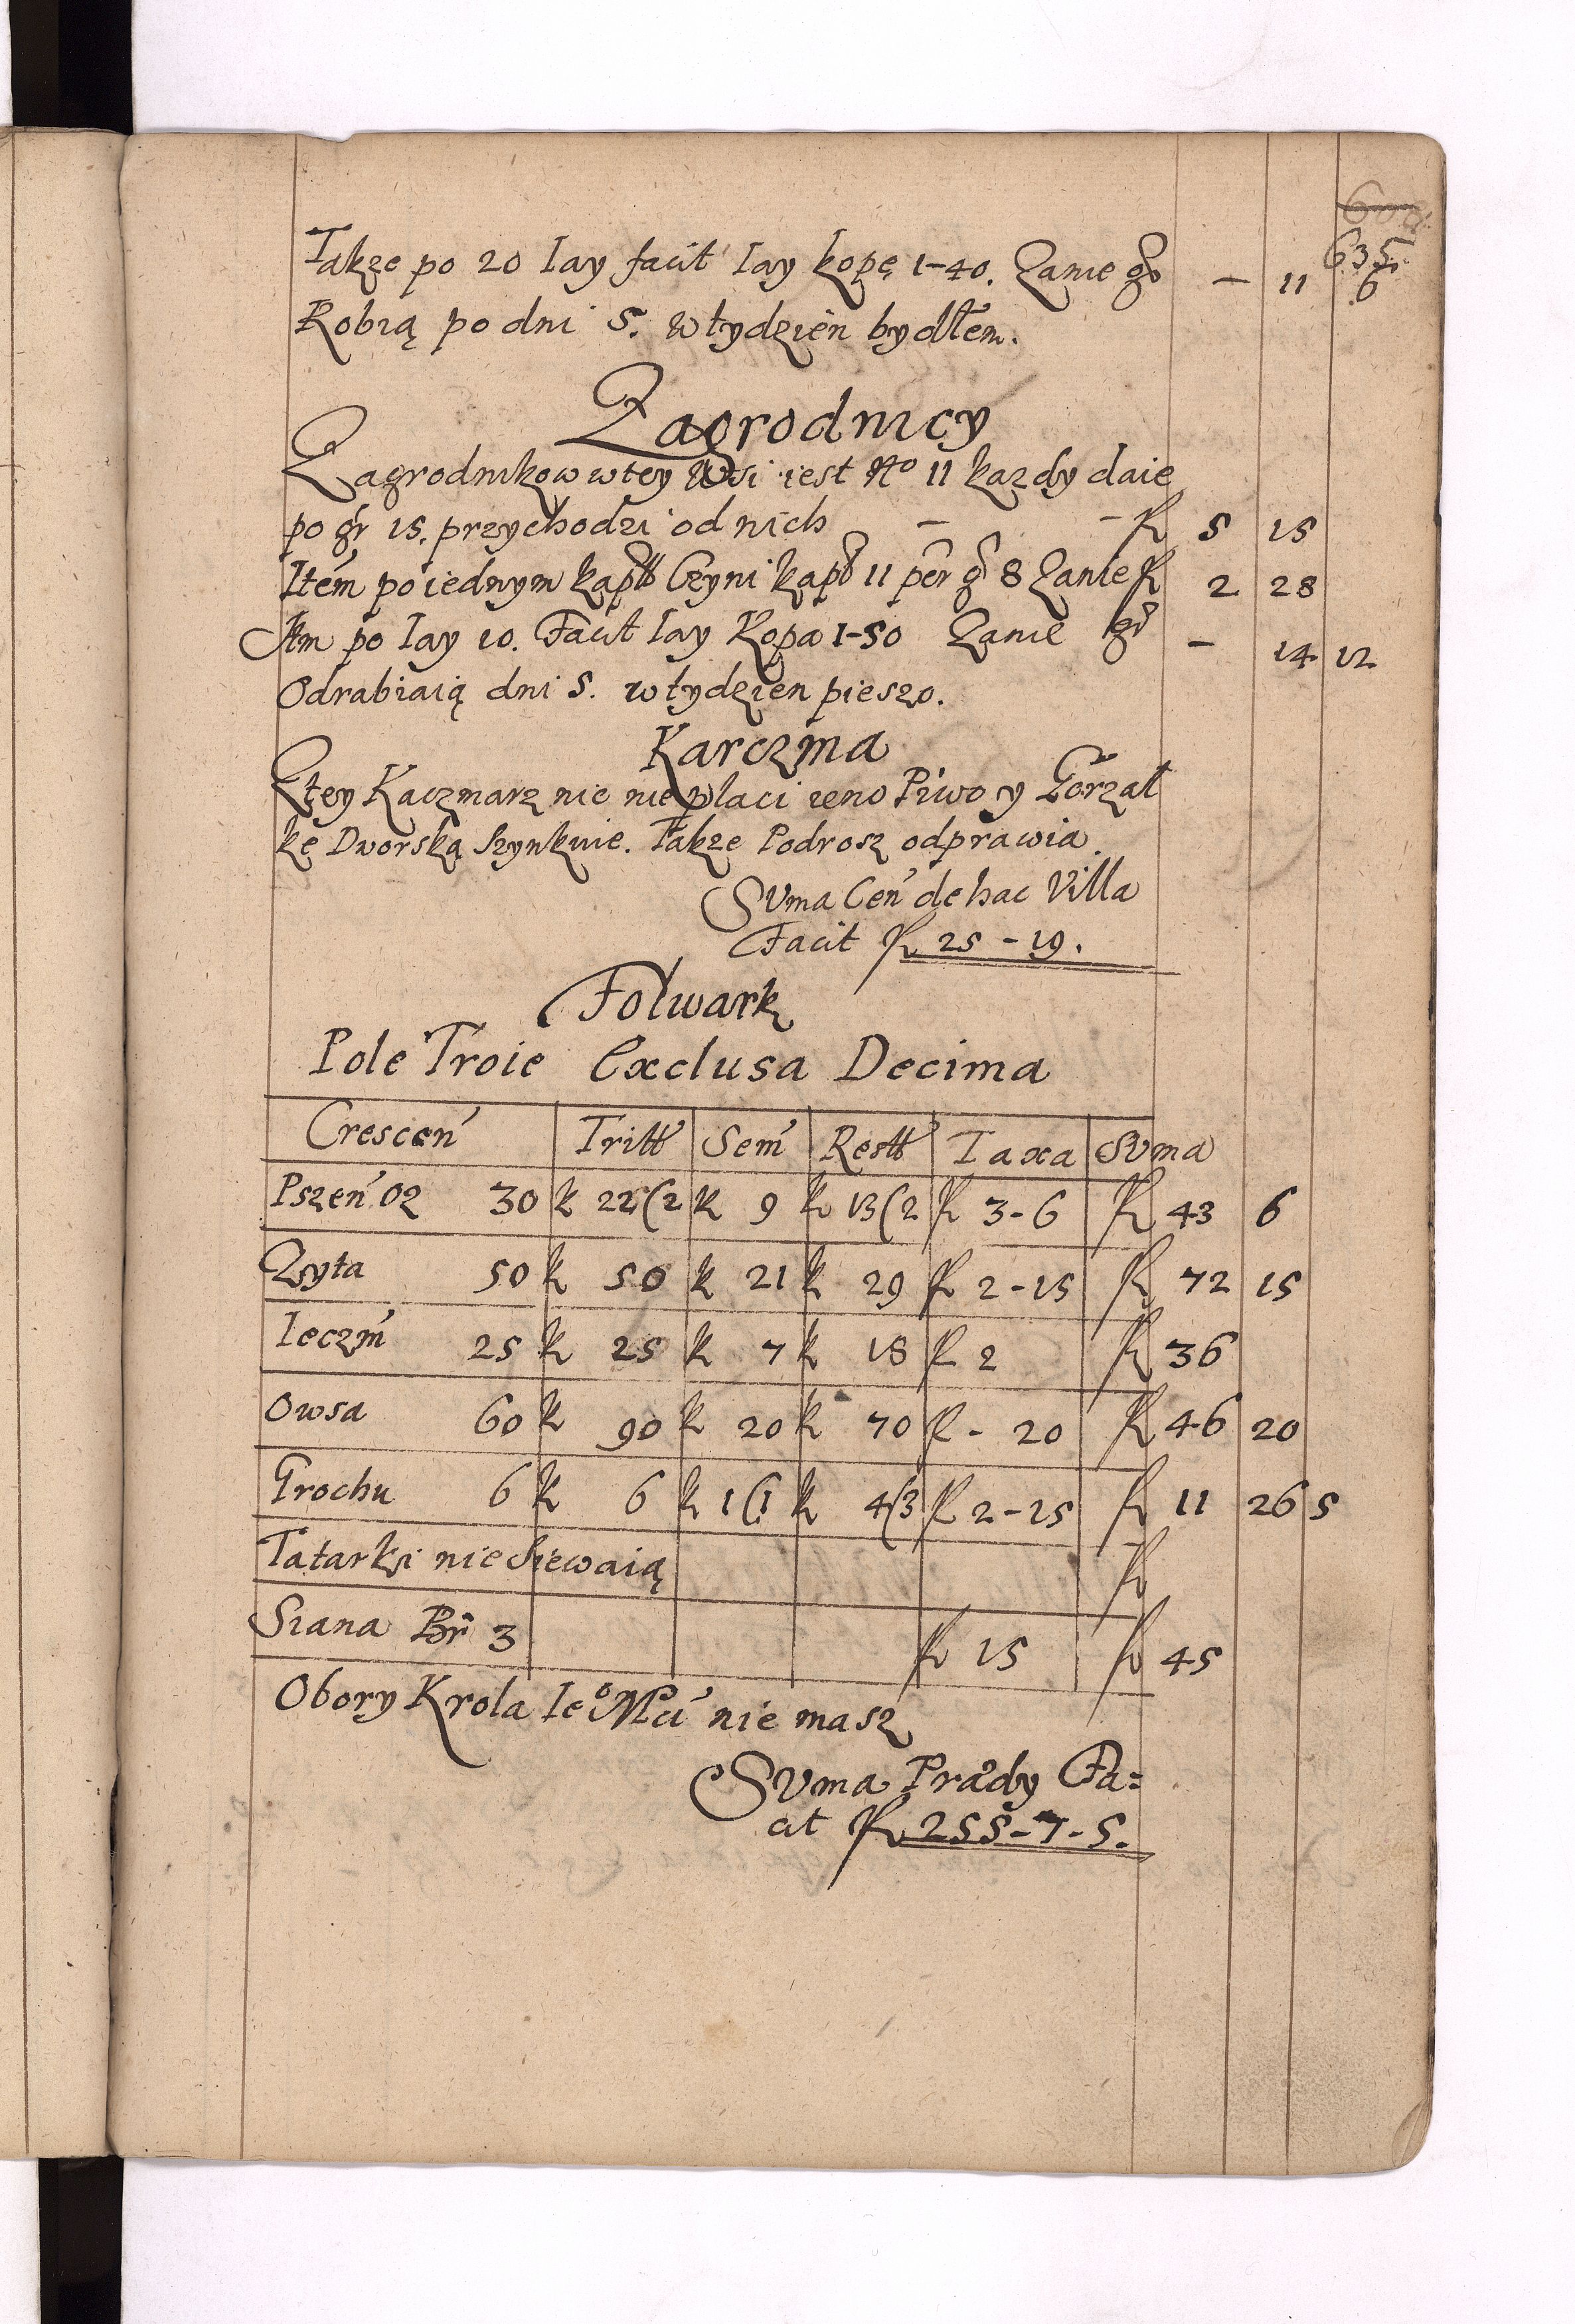 635
Takze po 20 Iay facit Iay kopę 1-40. Zanie gr — 11 6
Robią po dni 5. w tydzien bydłem.
Zagrodnicy
Zagrodnikow w tey Wsi iest No 11 kazdy daie
po gr 15. przychodzi od nich — — f 5 15
Item po iednym kapł Czyni kapł 11 per gr 8 Zanie f 2 28
Itm po Iay 10. Facit Iay Kopa 1-50 Zanie gr — 14 12
Odrabiaią dni 5. w tydzien pieszo.
Karczma
Z tey Kaczmarz nic nie płaci ieno Piwo y Gorzał
kę Dworską Szynkuie. Takze Podrosz odprawia.
Suma Cen de hac Villa
Facit f 25-19.
Folwark
Pole Troie Exclusa Decima
Crescen Tritt Sem Restt Taxa Suma
Pszen Oz 30 k 22(2 k 9 k 13(2 f 3-6 f 43 6
Zyta 50 k 50 k 21 k 29 f 2-15 f 72 15
Ieczm 25 k 25 k 7 k 18 f 2 f 36
Owsa 60 k 90 k 20 k 70 f - 20 f 46 20
Grochu 6 k 6 k 1(1 k 4(3 f 2-15 f 11 26 5
Tatarki nie Siewaią f
Siana Br 3 f 15 f 45
Obory Krola Ieo Mci nie masz
Suma Prædy Fa=
cit f 255-7-5.